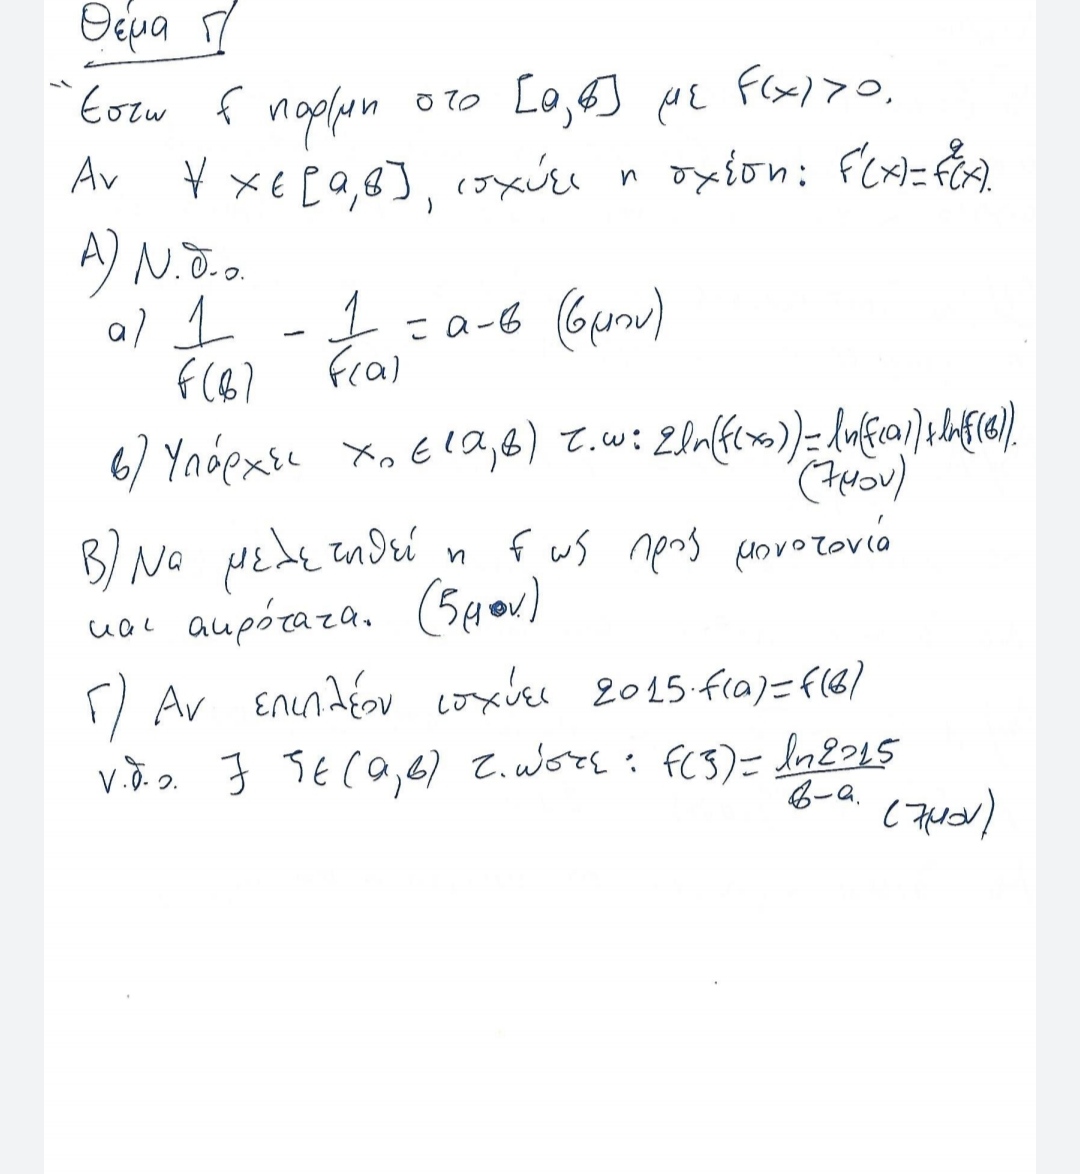 Θέμα Γ
Έστω f παρ/μη στο [α,β] με f(x)>0.
Αν ∀ x∈[α,β], ισχύει η σχέση: f'(x)=f²(x).
Α) Ν.δ.ο.
α) 1/f(β) - 1/f(α) = α-β (6μον)
β) Υπάρχει x₀∈(α,β) τ.ω: 2ln(f(x₀))=ln(f(α))+ln(f(β)).
(7μον)
Β) Να μελετηθεί η f ως προς μονοτονία
και ακρότατα. (5μον.)
Γ) Αν επιπλέον ισχύει 2015·f(α)=f(β)
ν.δ.ο. ∃ ξ∈(α,β) τ.ώστε: f(ξ)= ln2015/β-α.
(7μον)